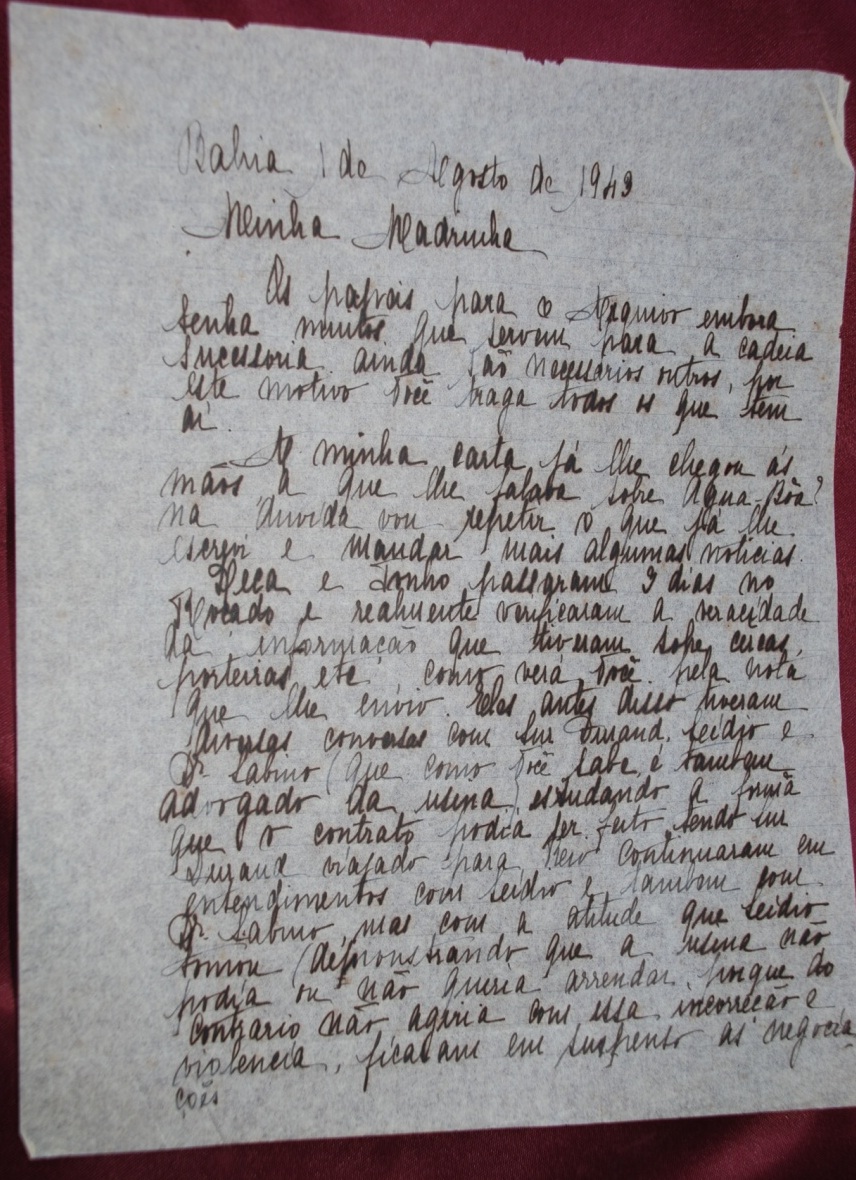 Bahia 1 de Agosto de 1943
Minha Madrinha
Os papeis para o Arquivo embora
tenha muitos que servem para a cadeia
sucessoria ainda são necessarios outros, por
este motivo você traga todos os que tem
aí.
A minha carta já lhe chegou ás
mãos, a que lhe falava sobre Agua Bôa?
na duvida vou repetir o que já lhe
escrevi e mandar mais algumas noticias.
e Tonho passaram 3 dias no
e realmente verificaram a veracidade
da informação que tiveram sobre cercas,
porteiras, etc. como verá você pela nota
que lhe envio. Eles antes disso tiveram
diversas conversas com snr Durand, Leidio e
Dr. Sabino (que como você sabe, é tambem
advogado da usina) estudando a forma
que o contrato podia ser feito, tendo snr
Durand viajado para continuaram em
entendimentos com Leidio e tambem com
Dr. Sabino, mas com a atitude que Leidio
tomou (demonstrando que a usina não
podia ou não queria arrendar, porque do
contrario não agiria com essa incorreção e
violencia, ficaram em suspenso as negocia
ções